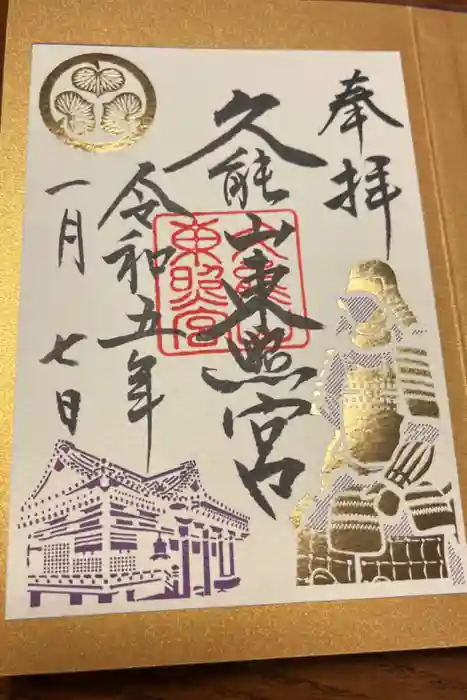 奉拝
久能山東照宮
令和五年
一月七日
久能山
東照宮